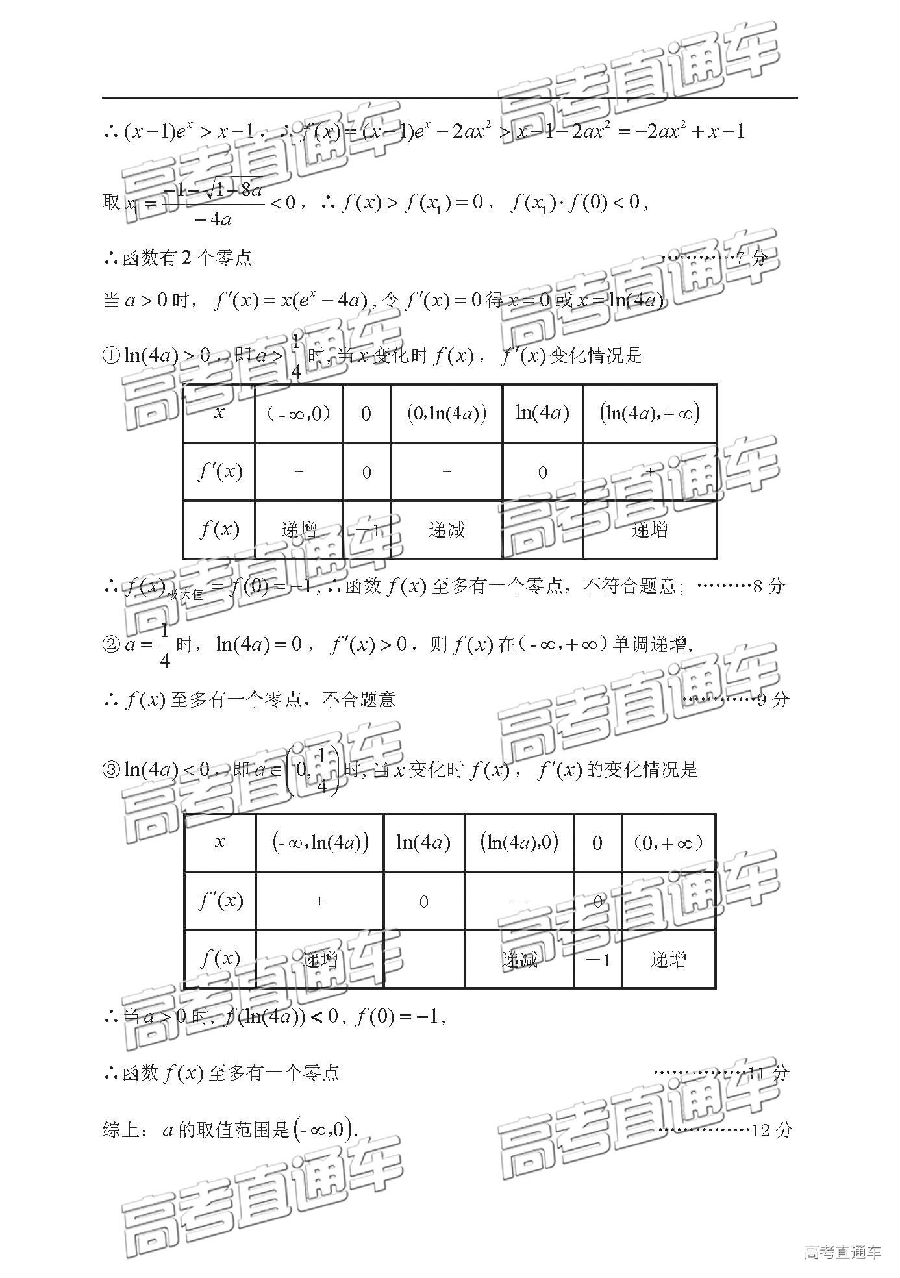 ∴(x−1)eˣ > x−1，∴f′(x)=(x−1)eˣ−2ax² > x−1−2ax² =−2ax²+x−1
取 x₁ = (−1−√(1−8a))/(−4a) < 0，∴ f(x) > f(x₁) = 0， f(x₁)·f(0) < 0,
∴函数有 2 个零点 …………7 分
当 a > 0 时， f′(x) = x(eˣ − 4a) , 令 f′(x) = 0 得 x = 0 或 x = ln(4a)
①ln(4a) > 0 ，即 a > 1/4 时, 当 x 变化时 f(x) ， f′(x) 变化情况是
x (-∞,0) 0 (0,ln(4a)) ln(4a) (ln(4a),−∞)
f′(x) 0 − 0 +
f(x) 递增 −1 递减 递增
∴ f(x)极大值 = f(0) = −1 , ∴函数 f(x) 至多有一个零点，不符合题意； ………8 分
② a = 1/4 时， ln(4a) = 0 ， f′(x) > 0 ，则 f(x) 在 (-∞,+∞) 单调递增,
∴ f(x) 至多有一个零点，不合题意 …………9 分
③ln(4a) < 0 ，即 a∈(0, 1/4) 时, 当 x 变化时 f(x) ， f′(x) 的变化情况是
x (-∞,ln(4a)) ln(4a) (ln(4a),0) 0 (0,+∞)
f″(x) 0 0
f(x) 递增 递减 −1 递增
∴当 a > 0 时, f(ln(4a)) < 0 , f(0) = −1 ,
∴函数 f(x) 至多有一个零点 ……………11 分
综上：a 的取值范围是 (-∞,0). ……………12 分
高考直通车